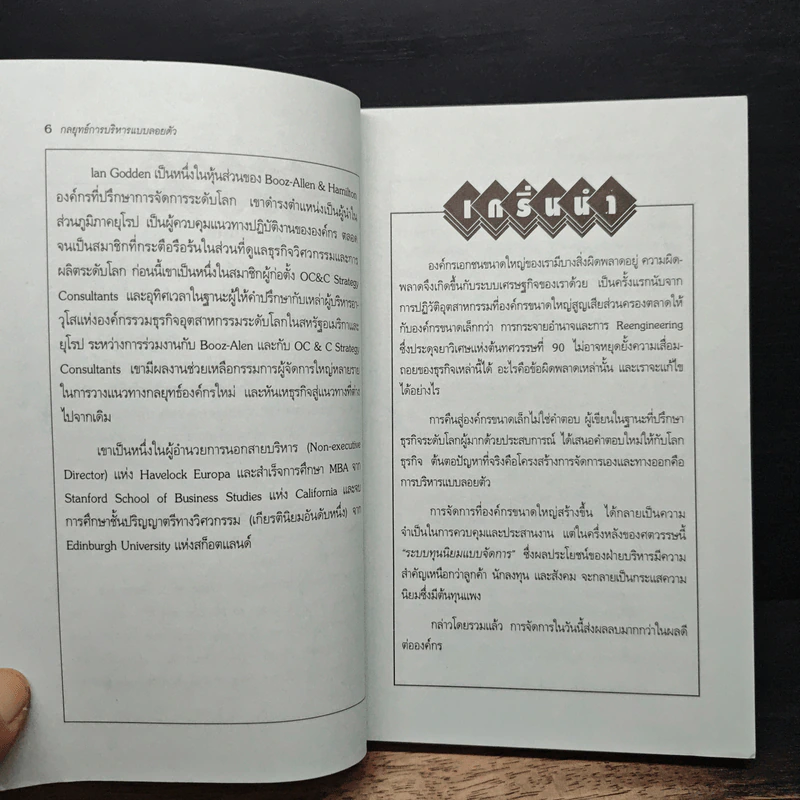 6 กลยุทธ์การบริหารแบบลอยตัว
Ian Godden เป็นหนึ่งในหุ้นส่วนของ Booz-Allen & Hamilton
องค์กรที่ปรึกษาการจัดการระดับโลก เขาดำรงตำแหน่งเป็นผู้นำใน
ส่วนภูมิภาคยุโรป เป็นผู้ควบคุมแนวทางปฏิบัติงานขององค์กร ตลอด
จนเป็นสมาชิกที่กระตือรือร้นในส่วนที่ดูแลธุรกิจวิศวกรรมและการ
ผลิตระดับโลก ก่อนนี้เขาเป็นหนึ่งในสมาชิกผู้ก่อตั้ง OC&C Strategy
Consultants และอุทิศเวลาในฐานะผู้ให้คำปรึกษากับเหล่าผู้บริหารอา-
วุโสแห่งองค์กรรวมธุรกิจอุตสาหกรรมระดับโลกในสหรัฐอเมริกาและ
ยุโรป ระหว่างการร่วมงานกับ Booz-Alen และกับ OC & C Strategy
Consultants เขามีผลงานช่วยเหลือกรรมการผู้จัดการใหญ่หลายราย
ในการวางแนวทางกลยุทธ์องค์กรใหม่ และหันเหธุรกิจสู่แนวทางที่ต่าง
ไปจากเดิม
เขาเป็นหนึ่งในผู้อำนวยการนอกสายบริหาร (Non-executive
Director) แห่ง Havelock Europa และสำเร็จการศึกษา MBA จาก
Stanford School of Business Studies แห่ง California และจบ
การศึกษาชั้นปริญญาตรีทางวิศวกรรม (เกียรตินิยมอันดับหนึ่ง) จาก
Edinburgh University แห่งสก็อตแลนด์
เกริ่นนำ
องค์กรเอกชนขนาดใหญ่ของเรามีบางสิ่งผิดพลาดอยู่ ความผิด-
พลาดจึงเกิดขึ้นกับระบบเศรษฐกิจของเราด้วย เป็นครั้งแรกนับจาก
การปฏิวัติอุตสาหกรรมที่องค์กรขนาดใหญ่สูญเสียส่วนครองตลาดให้
กับองค์กรขนาดเล็กกว่า การกระจายอำนาจและการ Reengineering
ซึ่งประดุจยาวิเศษแห่งต้นทศวรรษที่ 90 ไม่อาจหยุดยั้งความเสื่อม-
ถอยของธุรกิจเหล่านี้ได้ อะไรคือข้อผิดพลาดเหล่านั้น และเราจะแก้ไข
ได้อย่างไร
การคืนสู่องค์กรขนาดเล็กไม่ใช่คำตอบ ผู้เขียนในฐานะที่ปรึกษา
ธุรกิจระดับโลกผู้มากด้วยประสบการณ์ ได้เสนอคำตอบใหม่ให้กับโลก
ธุรกิจ ต้นตอปัญหาที่จริงคือโครงสร้างการจัดการเองและทางออกคือ
การบริหารแบบลอยตัว
การจัดการที่องค์กรขนาดใหญ่สร้างขึ้น ได้กลายเป็นความ
จำเป็นในการควบคุมและประสานงาน แต่ในครึ่งหลังของศตวรรษนี้
“ระบบทุนนิยมแบบจัดการ” ซึ่งผลประโยชน์ของฝ่ายบริหารมีความ
สำคัญเหนือกว่าลูกค้า นักลงทุน และสังคม จะกลายเป็นกระแสความ
นิยมซึ่งมีต้นทุนแพง
กล่าวโดยรวมแล้ว การจัดการในวันนี้ส่งผลลบมากกว่าในผลดี
ต่อองค์กร